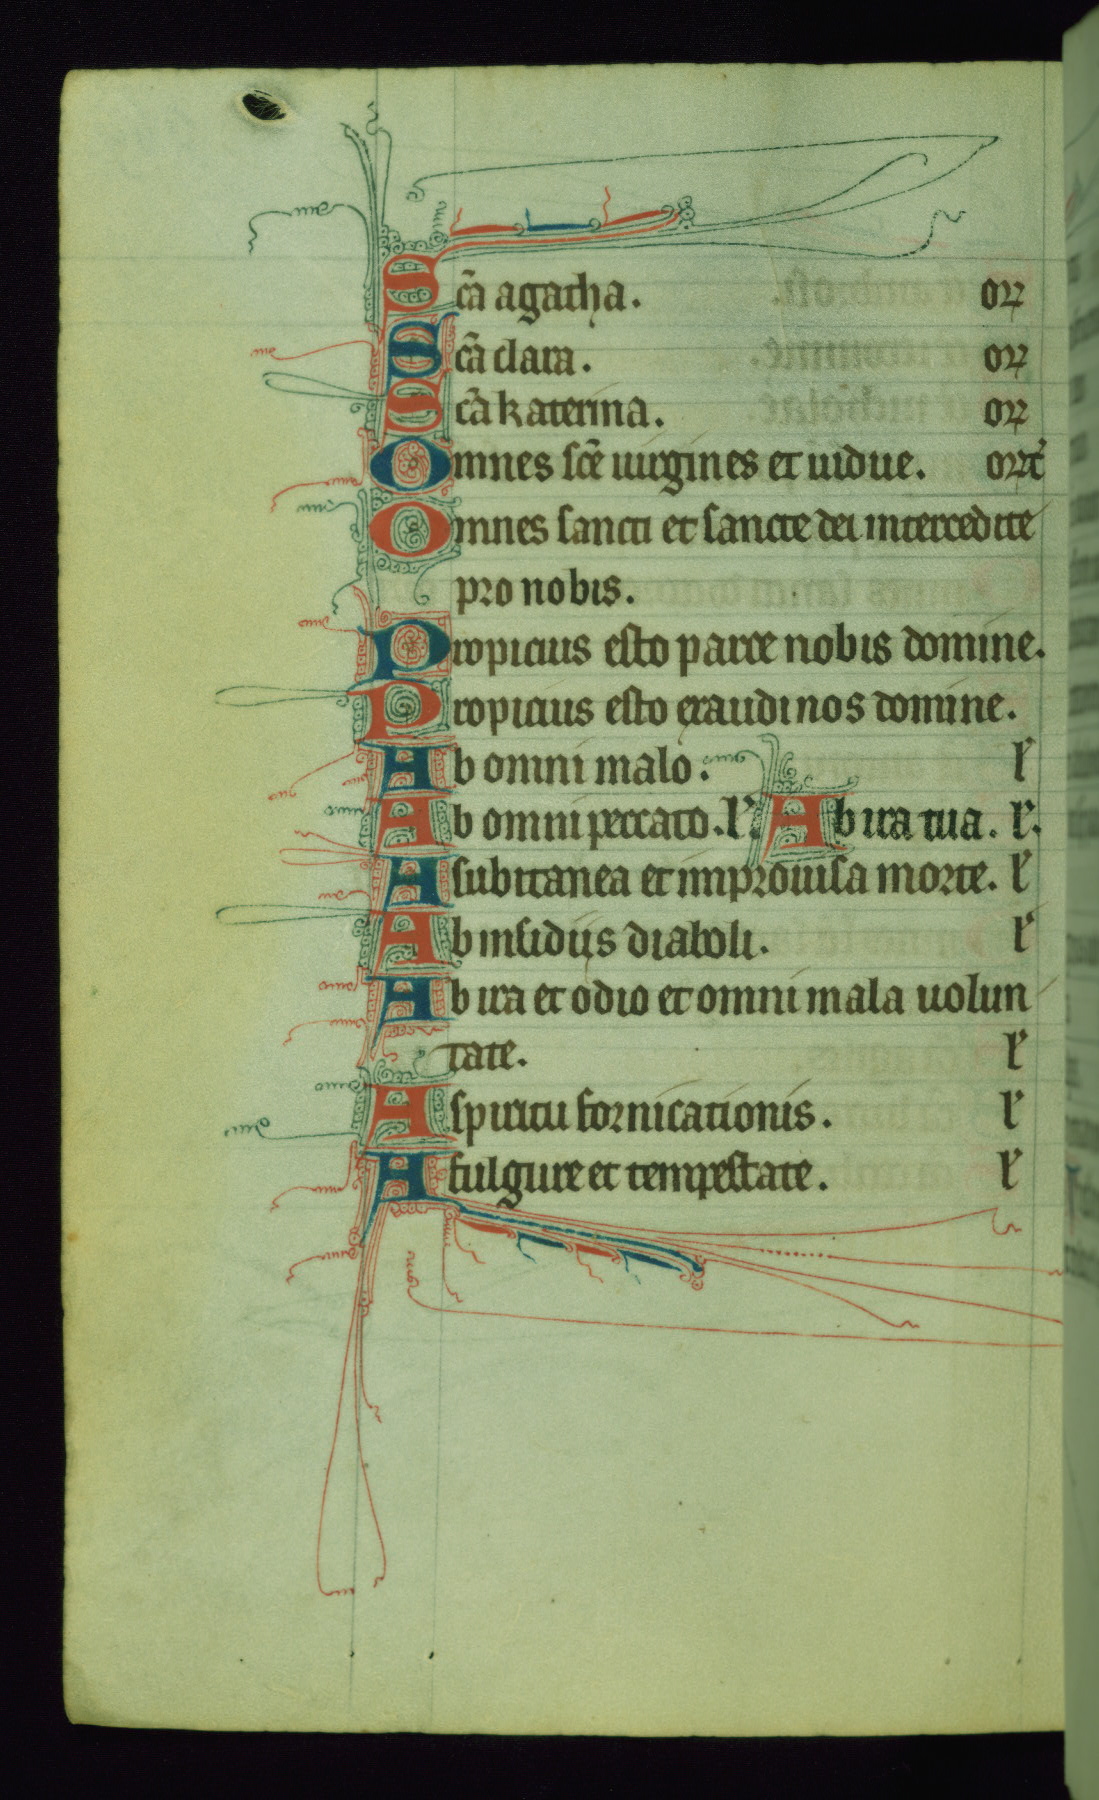 Sc̄a agatha. oꝝ
Sc̄a clara. oꝝ
Sc̄a katerina. oꝝ
Omnes sc̄e uirgines et uidue. orͭ
Omnes sancti et sancte dei intercedite
pro nobis.
Propicius esto parce nobis domine.
Propicius esto exaudi nos domine.
Ab omni malo. l'
Ab omni peccato. l'. Ab ira tua. l'.
A subitanea et improuisa morte. l'
Ab insidiis diaboli. l'
Ab ira et odio et omni mala uolun
tate. l'
A spiritu fornicationis. l'
A fulgure et tempestate. l'